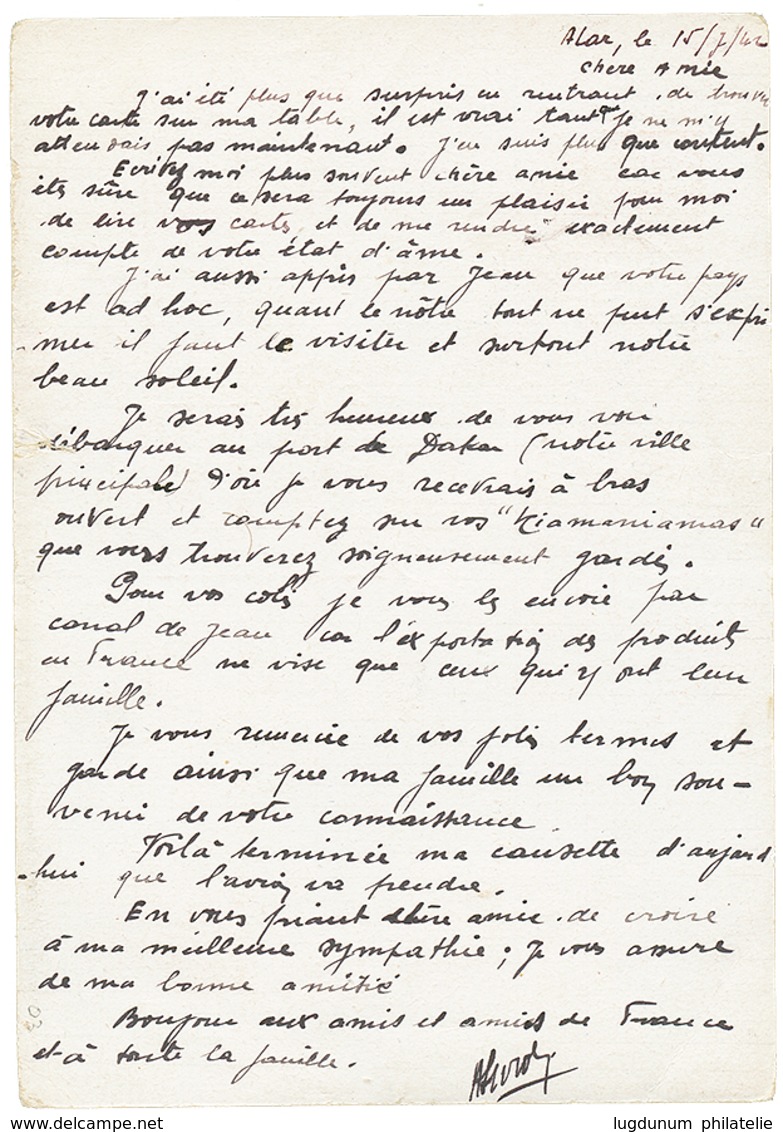 Atar, le 15/7/42
Chère Amie
J'ai été plus que surpris en rentrant de trouver
votre carte sur ma table, il est vrai tant je ne m'y
attendais pas maintenant. J'en suis plus que content.
Ecrivez moi plus souvent chère amie car vous
êtes sûre que ce sera toujours un plaisir pour moi
de lire vos cartes et de me rendre exactement
compte de votre état d'âme.
J'ai aussi appris par Jean que votre pays
est ad hoc, quant le nôtre tout ne peut s'expri
-mer il faut le visiter et surtout notre
beau soleil.
Je serais très heureux de vous voir
débarquer au port de Dakar (notre ville
principale) d'où je vous recevrais à bras
ouvert et comptez sur vos "Kiamaniamas"
que vous trouverez soigneusement gardés.
Pour vos colis je vous les envoie par
canal de Jean car l'exportation des produits
en France ne vise que ceux qui y ont leur
famille.
Je vous remercie de vos jolis termes et
garde ainsi que ma famille un bon sou-
venir de votre connaissance
Voilà terminée ma causette d'aujourd
-hui que l'avion va prendre.
En vous priant chère amie de croire
à ma meilleure sympathie ; je vous assure
de ma bonne amitié
Bonjour aux amis et amies de France
et à toute la famille.
www.delcampe.net
lugdunum philatelie